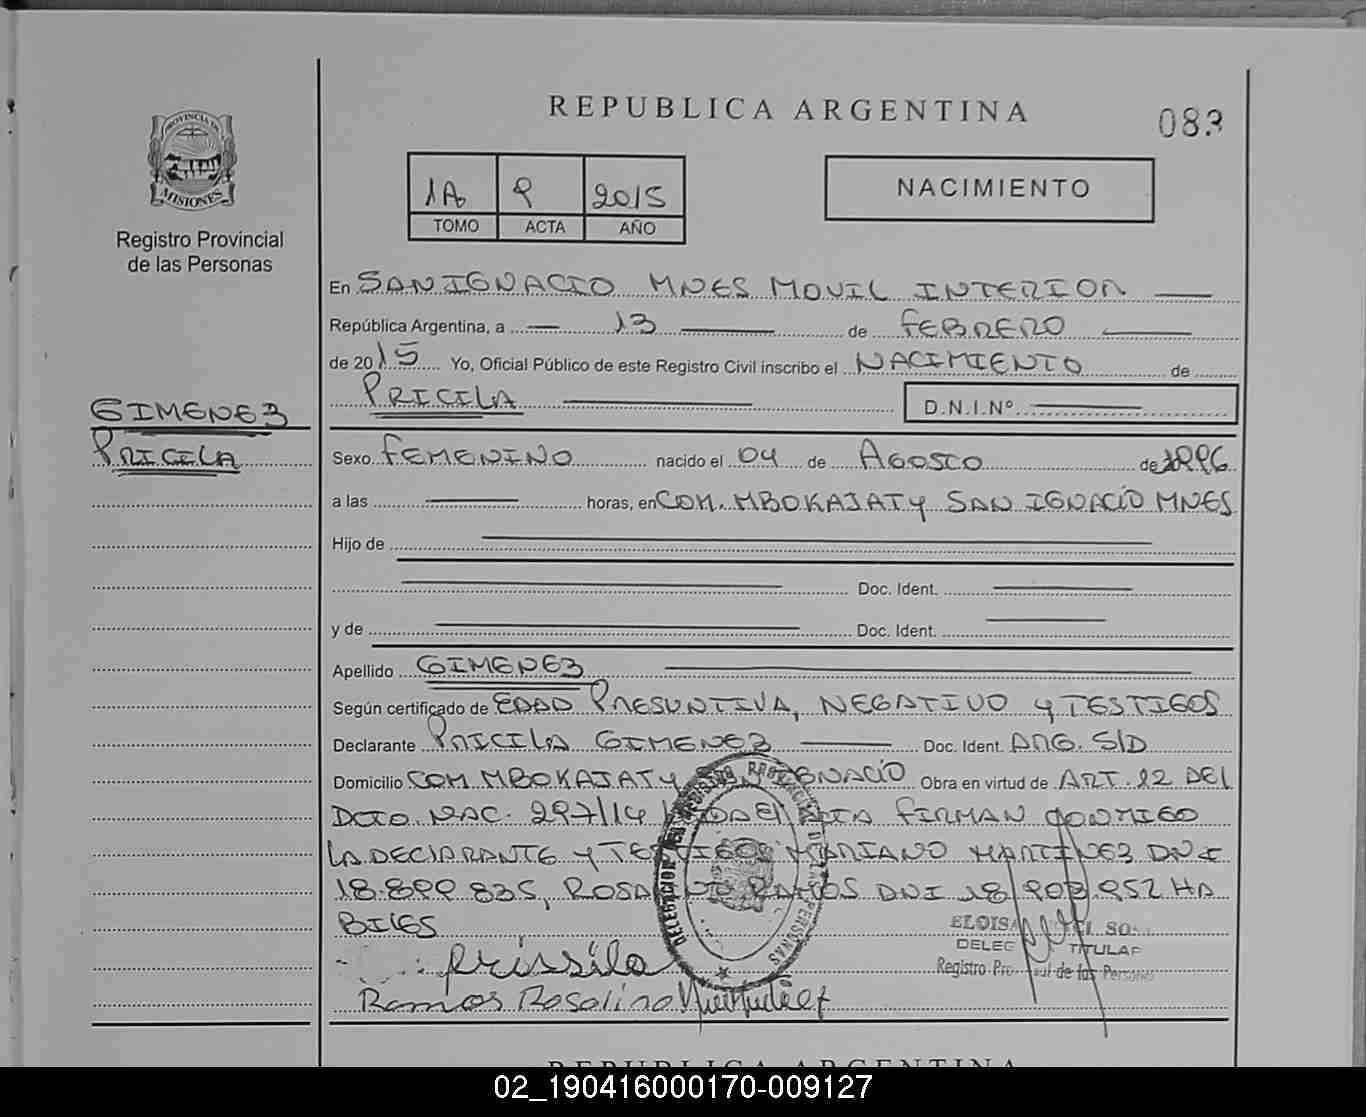 REPUBLICA ARGENTINA
083
PROVINCIA DE
MISIONES
Registro Provincial
de las Personas
1A 9 2015
TOMO ACTA AÑO
NACIMIENTO
En SAN IGNACIO MNES MOVIL INTERIOR
República Argentina, a 13 de FEBRERO
de 2015 Yo, Oficial Público de este Registro Civil inscribo el NACIMIENTO de
PRICILA D.N.I.Nº
GIMENEZ
PRICILA
Sexo FEMENINO nacido el 04 de AGOSTO de 1996
a las horas, en COM. MBOKAJATY SAN IGNACIO MNES
Hijo de
Doc. Ident.
y de Doc. Ident.
Apellido GIMENEZ
Según certificado de EDAD PRESUNTIVA, NEGATIVO y TESTIGOS
Declarante PRICILA GIMENEZ Doc. Ident. ARG. S/D
Domicilio COM. MBOKAJATY SAN IGNACIO Obra en virtud de ART. 12 DEL
DCTO. NAC. 297/14 ACTA FIRMAN CONMIGO
LA DECLARANTE y TESTIGOS MARIANO MARTINEZ DNI
18.899.835, ROSALINO RAMOS DNI 18.908.952 HA
BILES
DELEGACION DEL REGISTRO PROVINCIAL DE LAS PERSONAS
ELOISA
DELEG TITULAR
Registro Provincial de las Personas
Prissila
Ramos Rosalino
REPUBLICA ARGENTINA
02_190416000170-009127